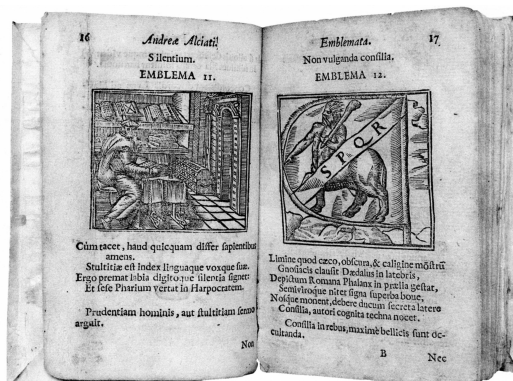 16
Andreæ Alciati.
Silentium.
EMBLEMA 11.
Cùm tacet, haud quicquam differ sapientibus
amens.
Stultitiæ est index linguaque voxque suæ.
Ergo premat labia digitoque silentia signet:
Et sese Pharium vertat in Harpocratem.
Prudentiam hominis, aut stultitiam sermo
arguit.
Non
Emblemata.
17
Non vulganda consilia.
EMBLEMA 12.
S P Q R
Limine quod cæco, obscura, & caligine mõstrũ
Gnosiacis clausit Dædalus in latebris,
Depictum Romana Phalanx in prælia gestat,
Semiviroque nitet signa superba bove,
Nosque monent, debere ducum secreta latere
Consilia, autori cognita techna nocet.
Consilia in rebus, maximè bellicis sunt oc-
cultanda.
B
Nec